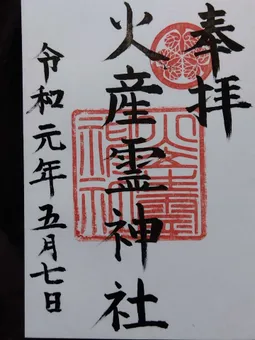 奉拝
火産霊神社
令和元年五月七日
火産霊神社